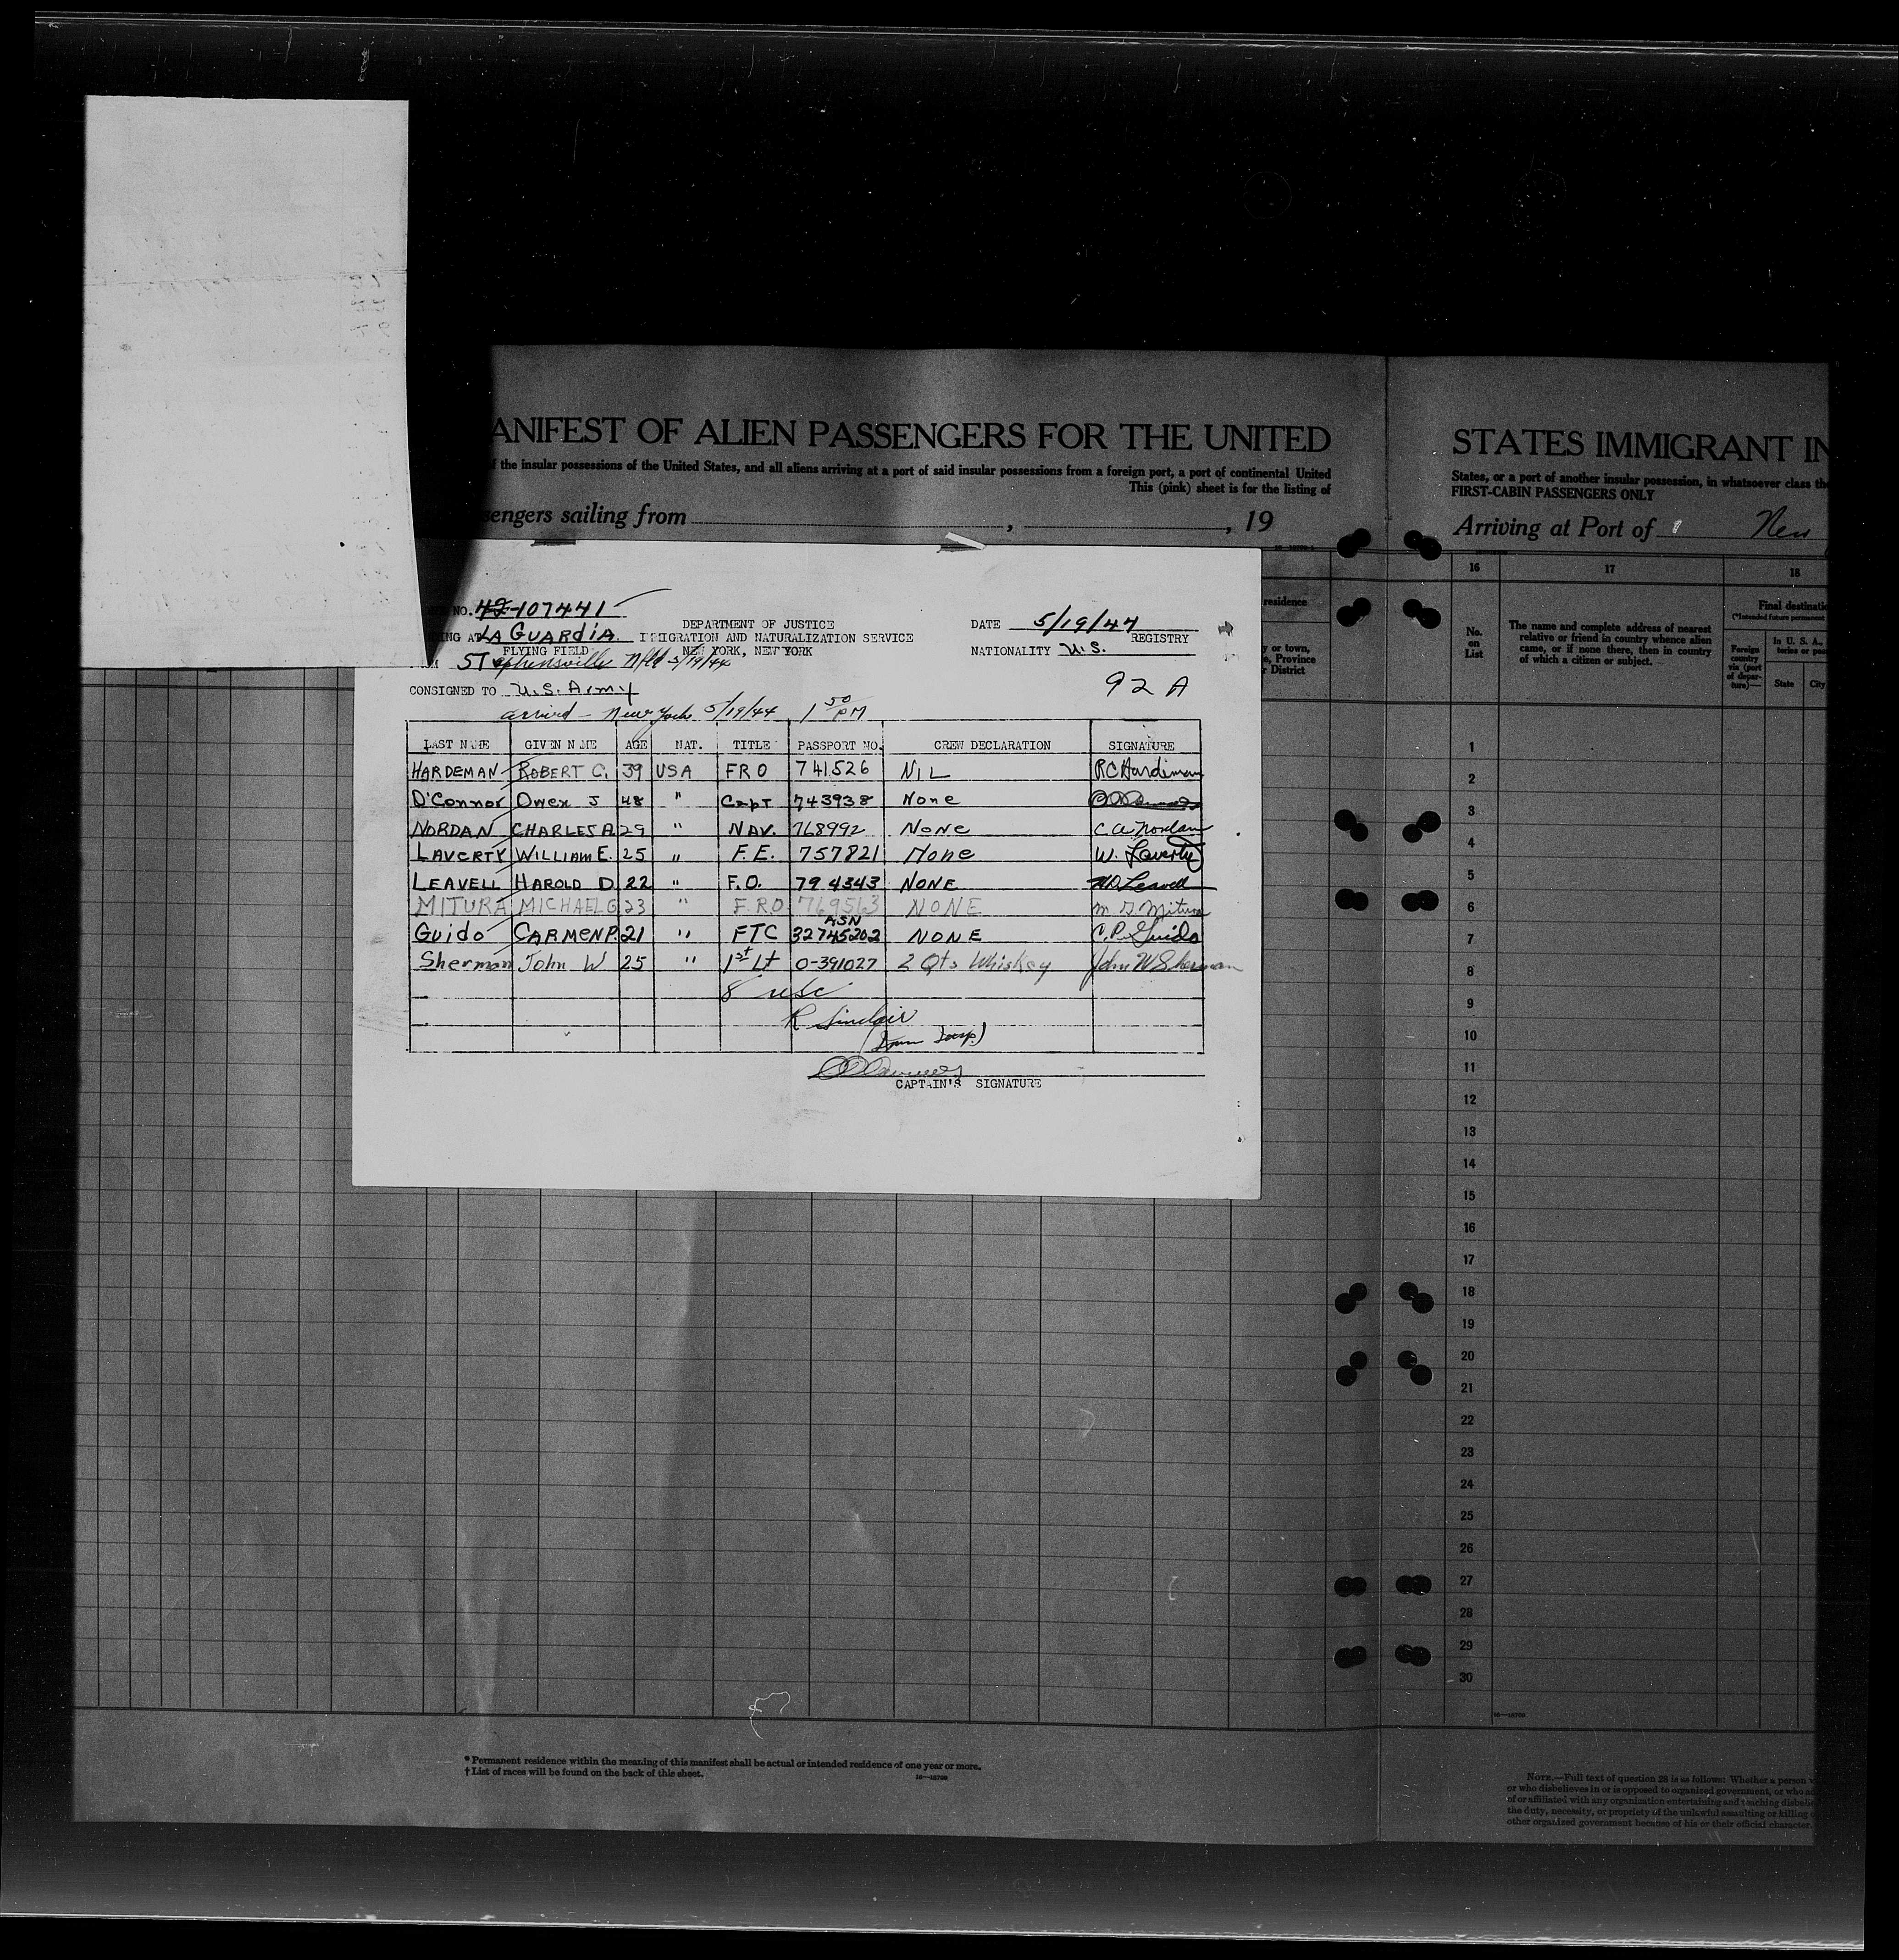 ANIFEST OF ALIEN PASSENGERS FOR THE UNITED
f the insular possessions of the United States, and all aliens arriving at a port of said insular possessions from a foreign port, a port of continental United
This (pink) sheet is for the listing of
sengers sailing from , , 19
STATES IMMIGRANT IN
States, or a port of another insular possession, in whatsoever class the
FIRST-CABIN PASSENGERS ONLY
Arriving at Port of New
NO. 42-107441
DEPARTMENT OF JUSTICE
DATE 5/19/44
ING AT LA GUARDIA IMMIGRATION AND NATURALIZATION SERVICE
REGISTRY
FLYING FIELD NEW YORK, NEW YORK
NATIONALITY U.S.
STephensville Nfld 5/19/44
CONSIGNED TO U.S. Army
92 A
arrived - New York 5/19/44 1 50 PM
LAST NAME GIVEN NAME AGE NAT. TITLE PASSPORT NO. CREW DECLARATION SIGNATURE
HARDEMAN ROBERT C. 39 USA FRO 741526 NIL RC Hardeman
O'Connor Owen J 48 " Capt 743938 None
NORDAN CHARLES A 29 " NAV. 768992 NONE C A Nordan
LAVERTY WILLIAM E. 25 " F.E. 757821 None W. Laverty
LEAVELL HAROLD D 22 " F.O. 794343 NONE HD Leavell
MITURA MICHAEL G 23 " F.R.O. 769563 NONE M G Mitura
Guido CARMEN P. 21 " FTC ASN 32745202 NONE C.P. Guido
Sherman John W 25 " 1st Lt O-391027 2 Qts Whiskey John W Sherman
8 usc
R Sinclair
CAPTAIN'S SIGNATURE
residence
y or town,
e, Province
r District
16 17 18
No. on List
The name and complete address of nearest relative or friend in country whence alien came, or if none there, then in country of which a citizen or subject.
Final destinatio
(*Intended future permanent
Foreign country via (port of departure)—
In U. S. A.,
State City
1
2
3
4
5
6
7
8
9
10
11
12
13
14
15
16
17
18
19
20
21
22
23
24
25
26
27
28
29
30
* Permanent residence within the meaning of this manifest shall be actual or intended residence of one year or more.
† List of races will be found on the back of this sheet.
NOTE.—Full text of question 28 is as follows: Whether a person
or who disbelieves in or is opposed to organized government, or who
of or affiliated with any organization entertaining and teaching disbelie
the duty, necessity, or propriety of the unlawful assaulting or killing
other organized government because of his or their official character.